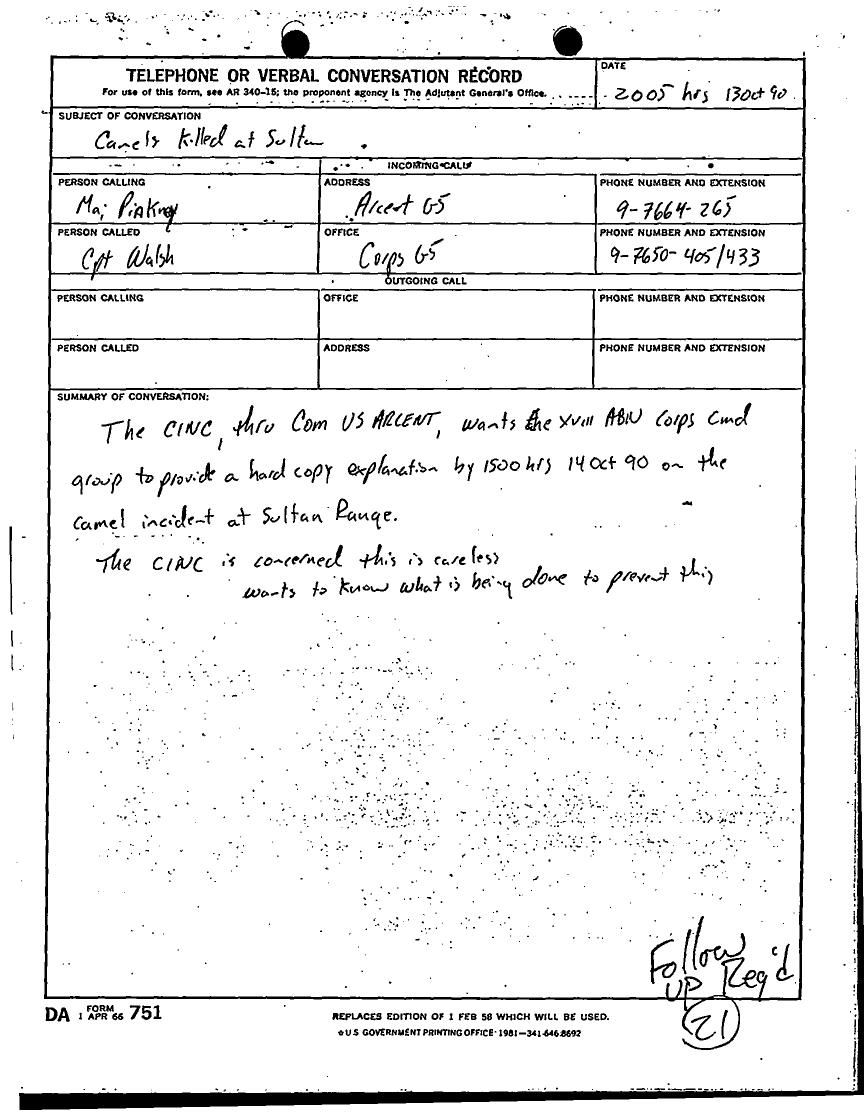 TELEPHONE OR VERBAL CONVERSATION RECORD
For use of this form, see AR 340-15; the proponent agency is The Adjutant General's Office.
DATE
2005 hrs 13Oct 90
SUBJECT OF CONVERSATION
Camels Killed at Sultan
INCOMING CALL
PERSON CALLING
ADDRESS
PHONE NUMBER AND EXTENSION
Maj Pinkney
Arcent G5
9-7664-265
PERSON CALLED
OFFICE
PHONE NUMBER AND EXTENSION
Cpt Walsh
Corps G5
9-7650-405/433
OUTGOING CALL
PERSON CALLING
OFFICE
PHONE NUMBER AND EXTENSION
PERSON CALLED
ADDRESS
PHONE NUMBER AND EXTENSION
SUMMARY OF CONVERSATION:
The CINC, thru Com US ARCENT, wants the XVIII ABN Corps Cmd
group to provide a hard copy explanation by 1500 hrs 14 Oct 90 on the
camel incident at Sultan Range.
The CINC is concerned this is careless
wants to know what is being done to prevent this
Follow
UP Req'd
21
DA FORM 1 APR 66 751
REPLACES EDITION OF 1 FEB 58 WHICH WILL BE USED.
☆U.S GOVERNMENT PRINTING OFFICE·1981—341-646.8692